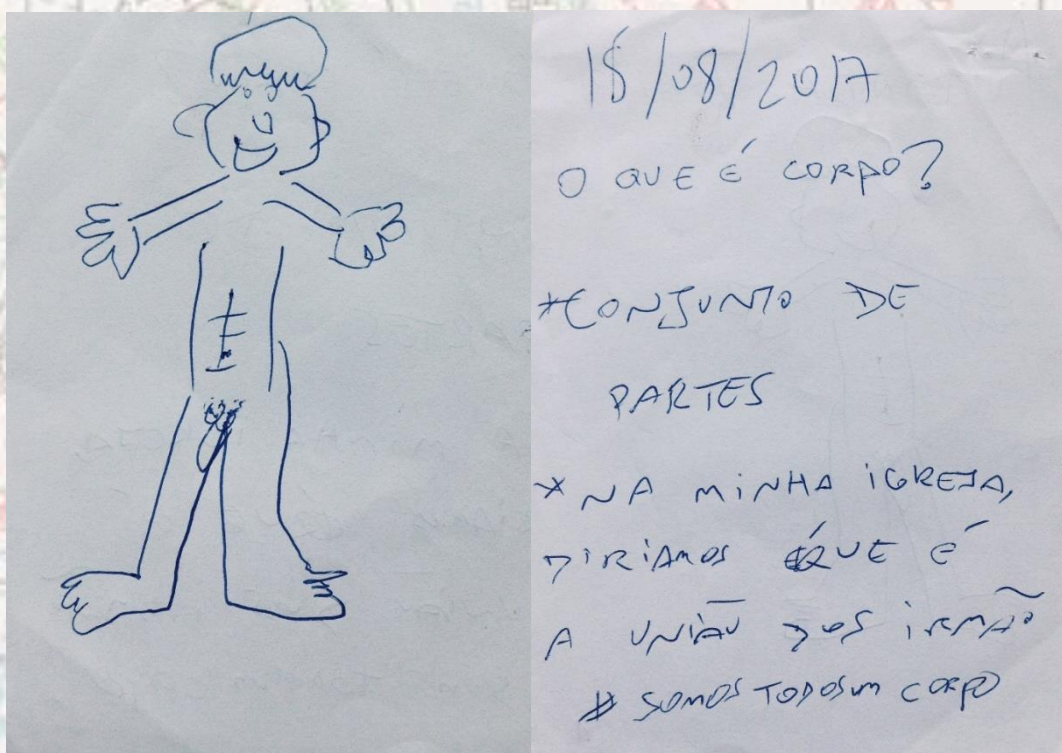 18/08/2017
O QUE É CORPO?
*CONJUNTO DE
PARTES
* NA MINHA IGREJA,
DIRÍAMOS QUE É
A UNIÃO DOS IRMÃO
# SOMOS TODOS UM CORPO